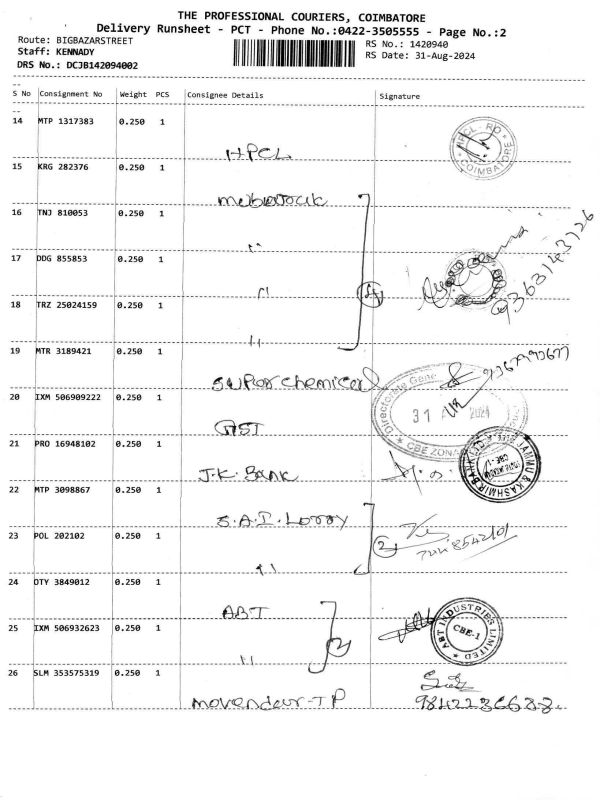 THE PROFESSIONAL COURIERS, COIMBATORE
Delivery Runsheet - PCT - Phone No.:0422-3505555 - Page No.:2
Route: BIGBAZARSTREET
RS No.: 1420940
Staff: KENNADY
RS Date: 31-Aug-2024
DRS No.: DCJB142094002
S No Consignment No Weight PCS Consignee Details Signature
14 MTP 1317383 0.250 1
HPCL
HPCL RO COIMBATORE
15 KRG 282376 0.250 1
16 TNJ 810053 0.250 1
"
17 DDG 855853 0.250 1
"
4
9363143726
18 TRZ 25024159 0.250 1
"
19 MTR 3189421 0.250 1
Super chemical
20 IXM 506909222 0.250 1
GST
Directorate Gene
31 2024
CBE ZONA
21 PRO 16948102 0.250 1
J.K. BANK
JAMMU & KASHMIR BANK LTD
CBE-1
22 MTP 3098867 0.250 1
S.A.I. Lorry
23 POL 202102 0.250 1
"
2
24 OTY 3849012 0.250 1
ABT
25 IXM 506932623 0.250 1
"
2
ABT INDUSTRIES LIMITED
CBE-1
26 SLM 353575319 0.250 1